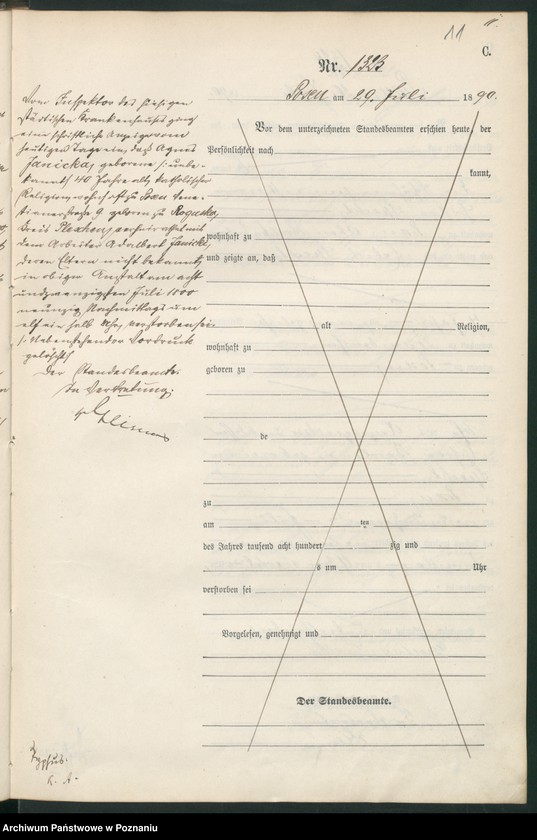 11
C.
Nr. 1323
Posen am 29. Juli 1890.
Vom Inspektor des hiesigen
städtischen Krankenhauses ging
eine schriftliche Anzeige vom
heutigen Tage ein, daß Agnes
Janicka, geborene (: unbe-
kannt :) 40 Jahre alt, katholischer
Religion, wohnhaft zu Posen, Vene-
tianerstraße 9 geboren zu
Kreis Pleschen, verheirathet mit
dem Arbeiter Adalbert Janicki,
deren Eltern nicht bekannt,
in obiger Anstalt am acht
und zwanzigsten Juli 1800
neunzig Nachmittags um
elf ein halb Uhr, verstorben sei.
(: Nebenstehender Vordruck
gelöscht :)
Der Standesbeamte
In Vertretung:
Vor dem unterzeichneten Standesbeamten erschien heute, der
Persönlichkeit nach
kannt,
wohnhaft zu
und zeigte an, daß
alt Religion,
wohnhaft zu
geboren zu
de
zu
am ten
des Jahres tausend acht hundert zig und
s um Uhr
verstorben sei
Vorgelesen, genehmigt und
Der Standesbeamte.
Typhus.
Archiwum Państwowe w Poznaniu